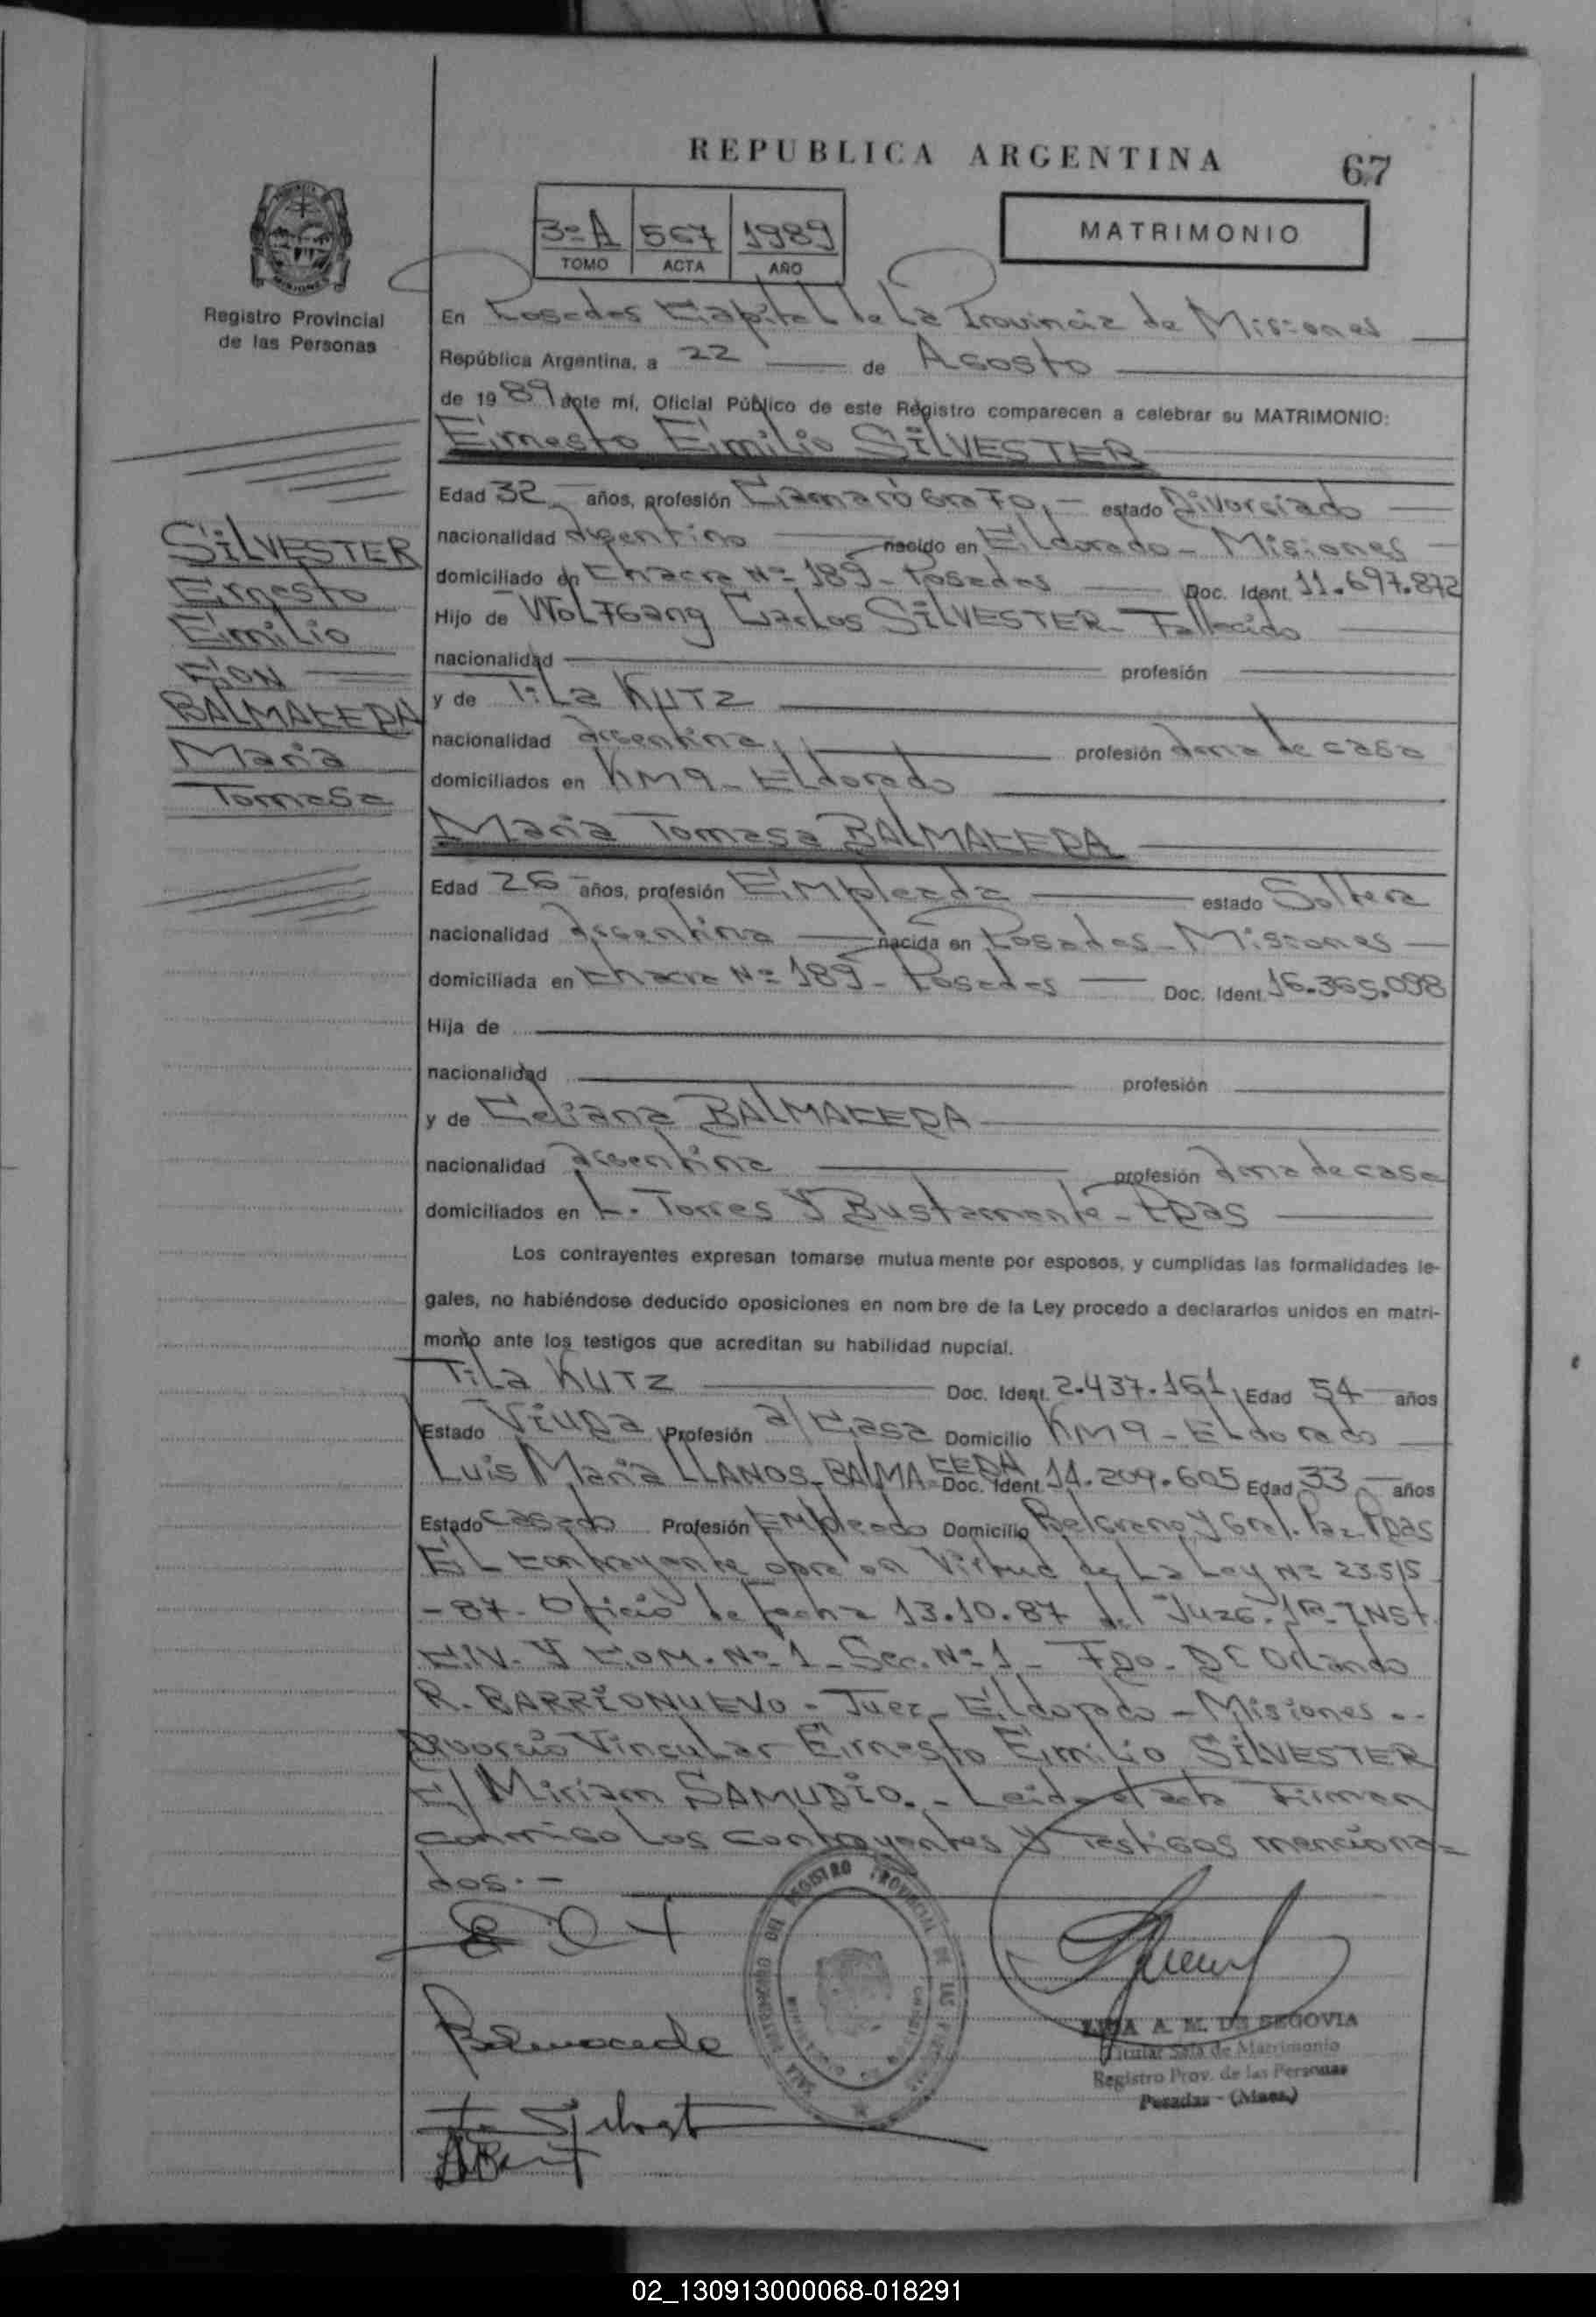 REPUBLICA ARGENTINA
67
3º A 567 1989
TOMO ACTA AÑO
MATRIMONIO
MISIONES
Registro Provincial
de las Personas
SILVESTER
Ernesto
Emilio
CON
BALMACEDA
María
Tomasa
En Posadas Capital de La Provincia de Misiones
República Argentina, a 22 de Agosto
de 1989 ante mí, Oficial Público de este Registro comparecen a celebrar su MATRIMONIO:
Ernesto Emilio SILVESTER
Edad 32 años, profesión Camarógrafo estado Divorciado
nacionalidad argentino nacido en Eldorado - Misiones
domiciliado en Chacra Nº 189 - Posadas Doc. Ident. 11.697.872
Hijo de Wolfgang Carlos SILVESTER - Fallecido
nacionalidad profesión
y de Tila KUTZ
nacionalidad argentina profesión ama de casa
domiciliados en KM 9 - Eldorado
María Tomasa BALMACEDA
Edad 26 años, profesión Empleada estado Soltera
nacionalidad argentina nacida en Posadas - Misiones
domiciliada en Chacra Nº 189 - Posadas Doc. Ident. 16.365.098
Hija de
nacionalidad profesión
y de Celiana BALMACEDA
nacionalidad argentina profesión ama de casa
domiciliados en L. Torres y Bustamante - Pdas
Los contrayentes expresan tomarse mutuamente por esposos, y cumplidas las formalidades le-
gales, no habiéndose deducido oposiciones en nombre de la Ley procedo a declararlos unidos en matri-
monio ante los testigos que acreditan su habilidad nupcial.
Tila KUTZ Doc. Ident. 2.437.161 Edad 54 años
Estado Viuda Profesión a/Casa Domicilio KM 9 - Eldorado
Luis María LLANOS BALMACEDA Doc. Ident. 14.209.605 Edad 33 años
Estado casado Profesión Empleado Domicilio Belgrano y Gral. Paz Pdas
El contrayente obra en Virtud de La Ley Nº 23.515
- 87 - Oficio de fecha 13.10.87 del Juzg. 1ª INst.
CIV. Y COM. Nº 1 - Sec. Nº 1 - Fdo. Dr Orlando
R. BARRIONUEVO - Juez - Eldorado - Misiones -
Divorcio Vincular Ernesto Emilio SILVESTER
C/ Miriam SAMUDIO. - Leida el acta Firman
conmigo Los contrayentes y testigos menciona=
dos. -
Balmaceda
REGISTRO PROVINCIAL DE LAS PERSONAS
A. M. DE SEGOVIA
Titular Sala de Matrimonio
Registro Prov. de las Personas
Posadas - (Mnes.)
02_130913000068-018291